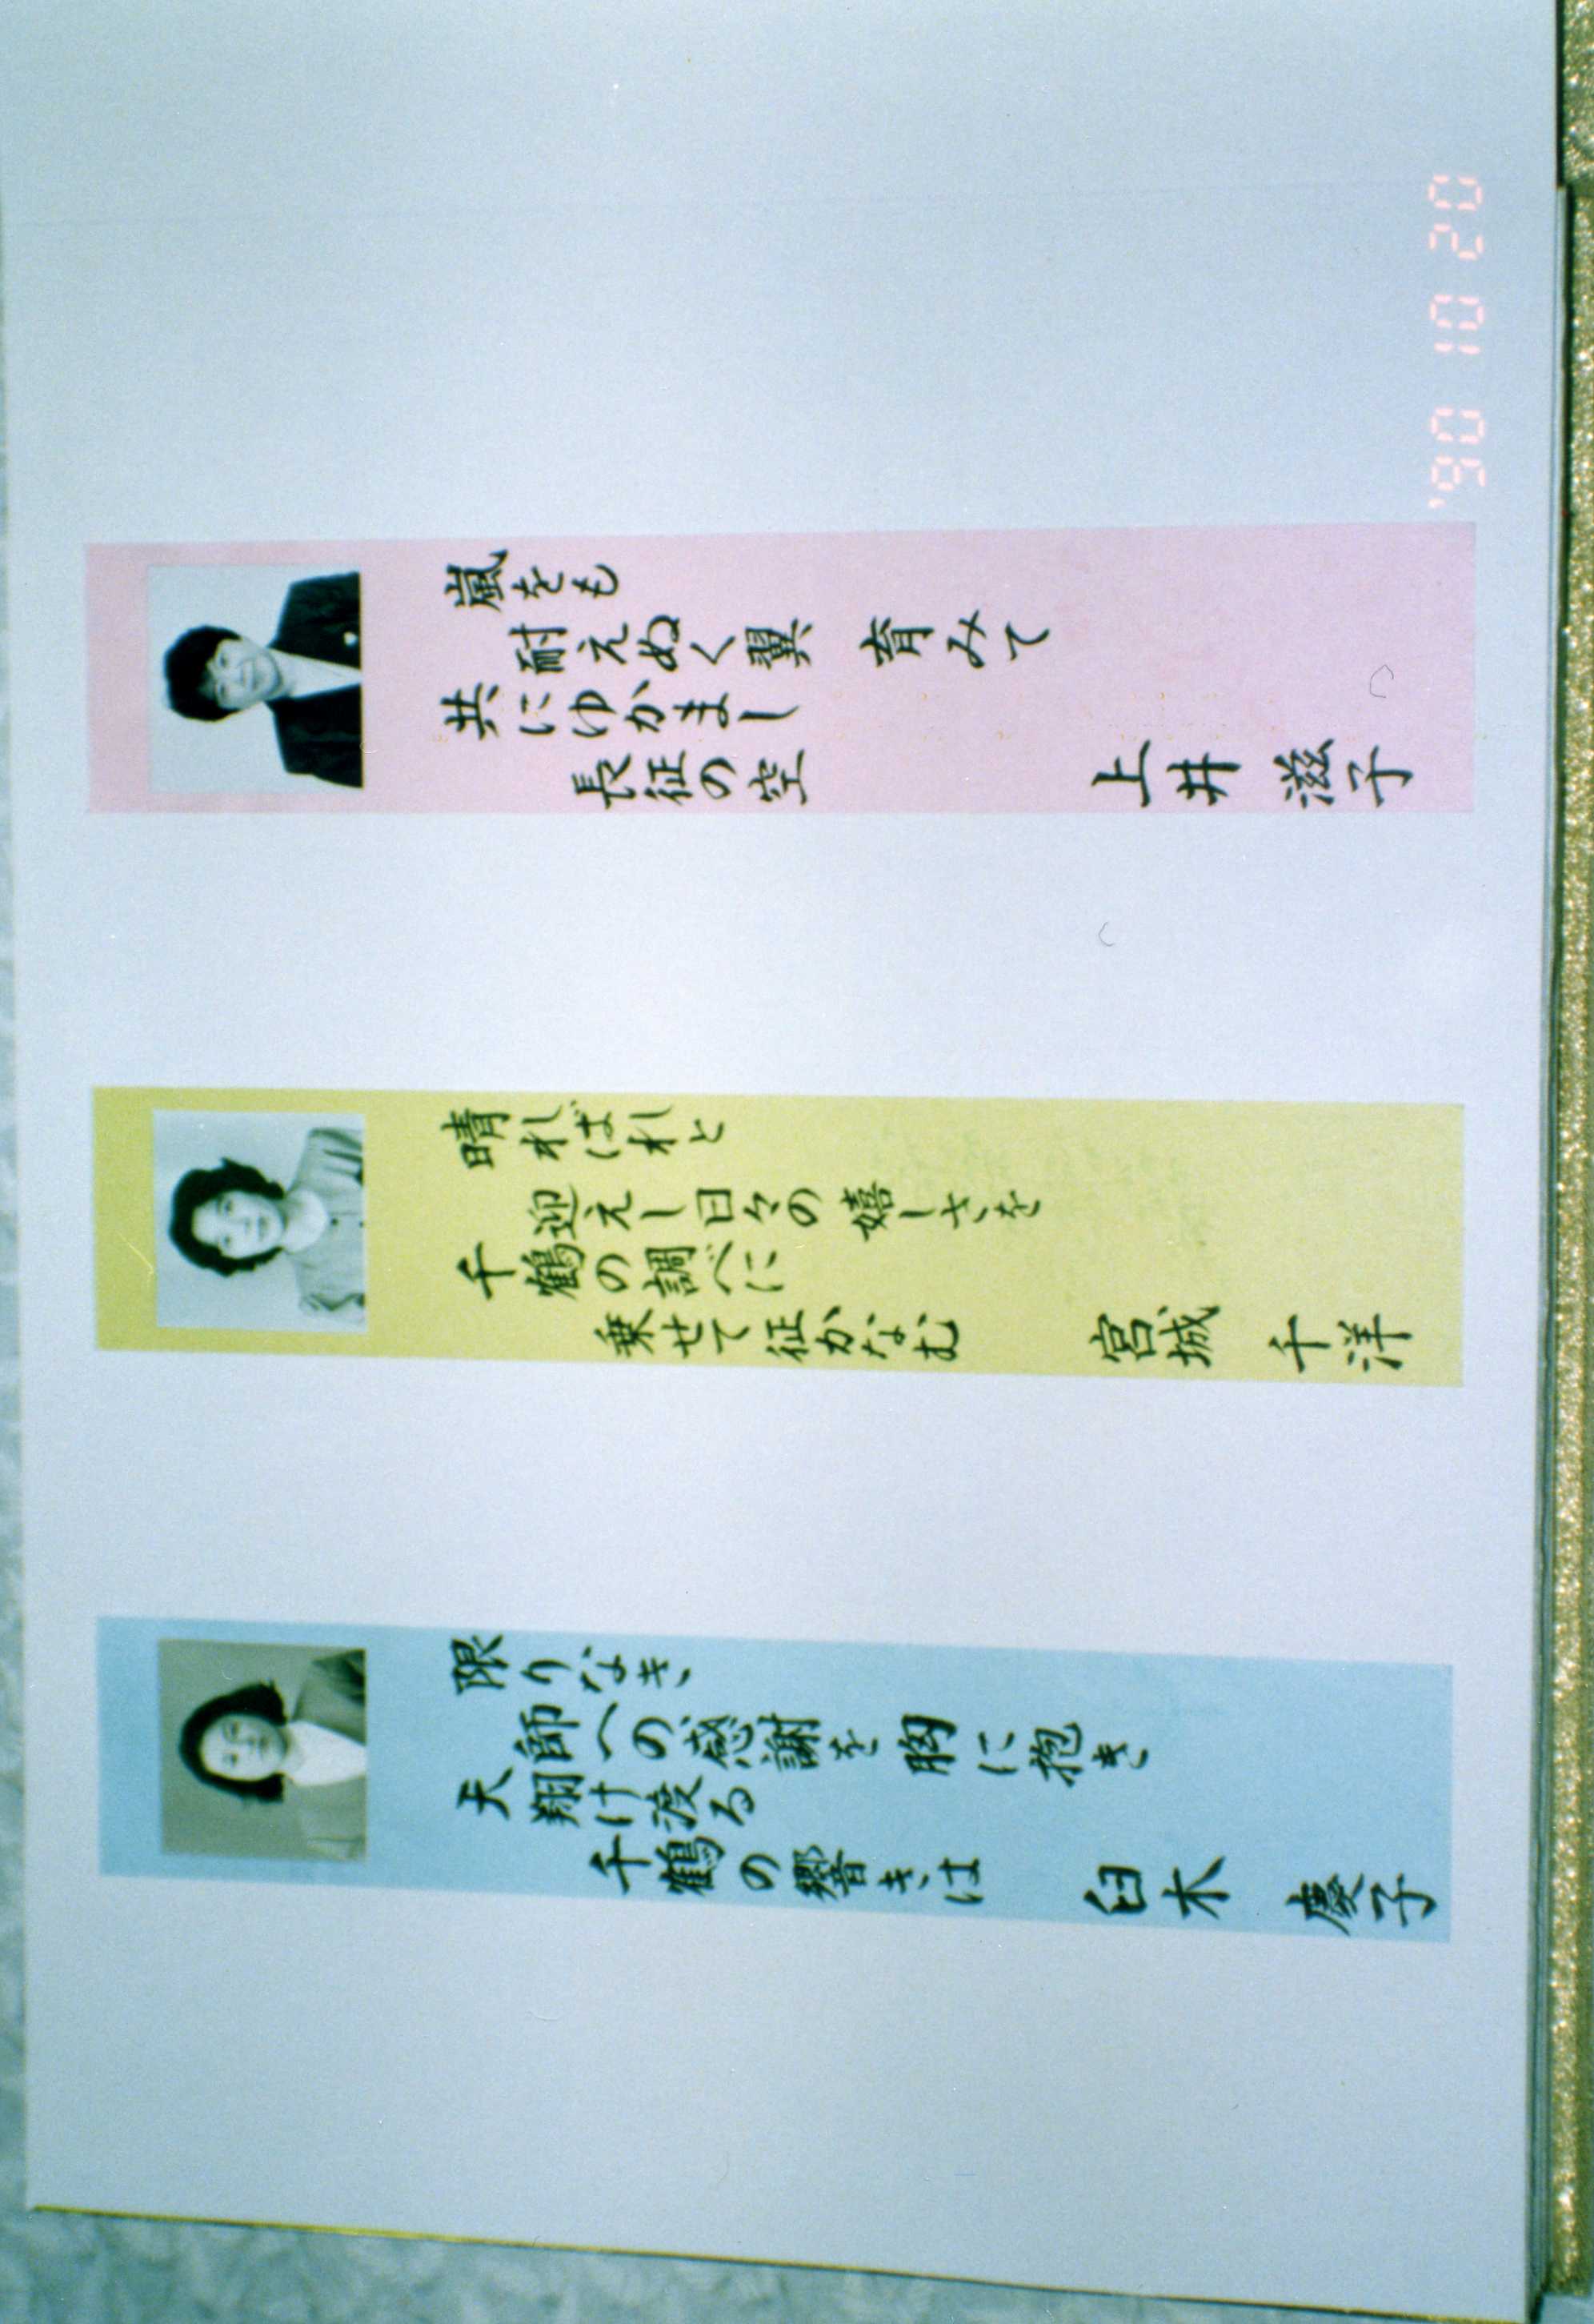 嵐をも
耐えぬく翼 育みて
共にゆかまし
長征の空
上井 滋子
晴ればれと
迎えし日々の嬉しさを
千鶴の調べに
乗せて征かなむ
宮城 千洋
限りなき
師への感謝を胸に抱き
天翔け渡る
千鶴の響きは
臼木 慶子
'90 10 20